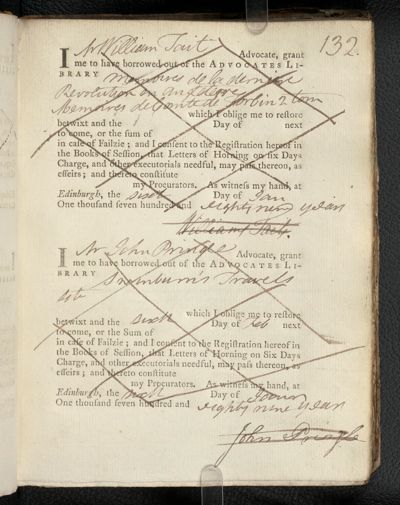 132.
I Mr William Tait Advocate, grant
me to have borrowed out of the ADVOCATES LI-
BRARY memoires de la derniere
Revolution en angleterre
Memoires de Comte de forbin 2 tom
which I oblige me to reſtore
betwixt and the Day of next
to come, or the sum of
in caſe of Failzie; and I conſent to the Regiſtration hereof in
the Books of Seſſion, that Letters of Horning on ſix Days
Charge, and other executorials needful, may paſs thereon, as
effeirs; and thereto conſtitute
my Procurators. As witneſs my hand, at
Edinburgh, the sixth Day of Jan
One thouſand ſeven hundred and eighty nine years
William Tait.
I Mr John Pringle Advocate, grant
me to have borrowed out of the ADVOCATES LI-
BRARY Swinburn's Travels
4to
which I oblige me to reſtore
betwixt and the sixth Day of feb next
to come, or the Sum of
in caſe of Failzie; and I conſent to the Regiſtration hereof in
the Books of Seſſion, that Letters of Horning on Six Days
Charge, and other executorials needful, may paſs thereon, as
effeirs; and thereto conſtitute
my Procurators. As witneſs my hand, at
Edinburgh, the sixth Day of
One thouſand ſeven hundred and eighty nine years
John Pringle